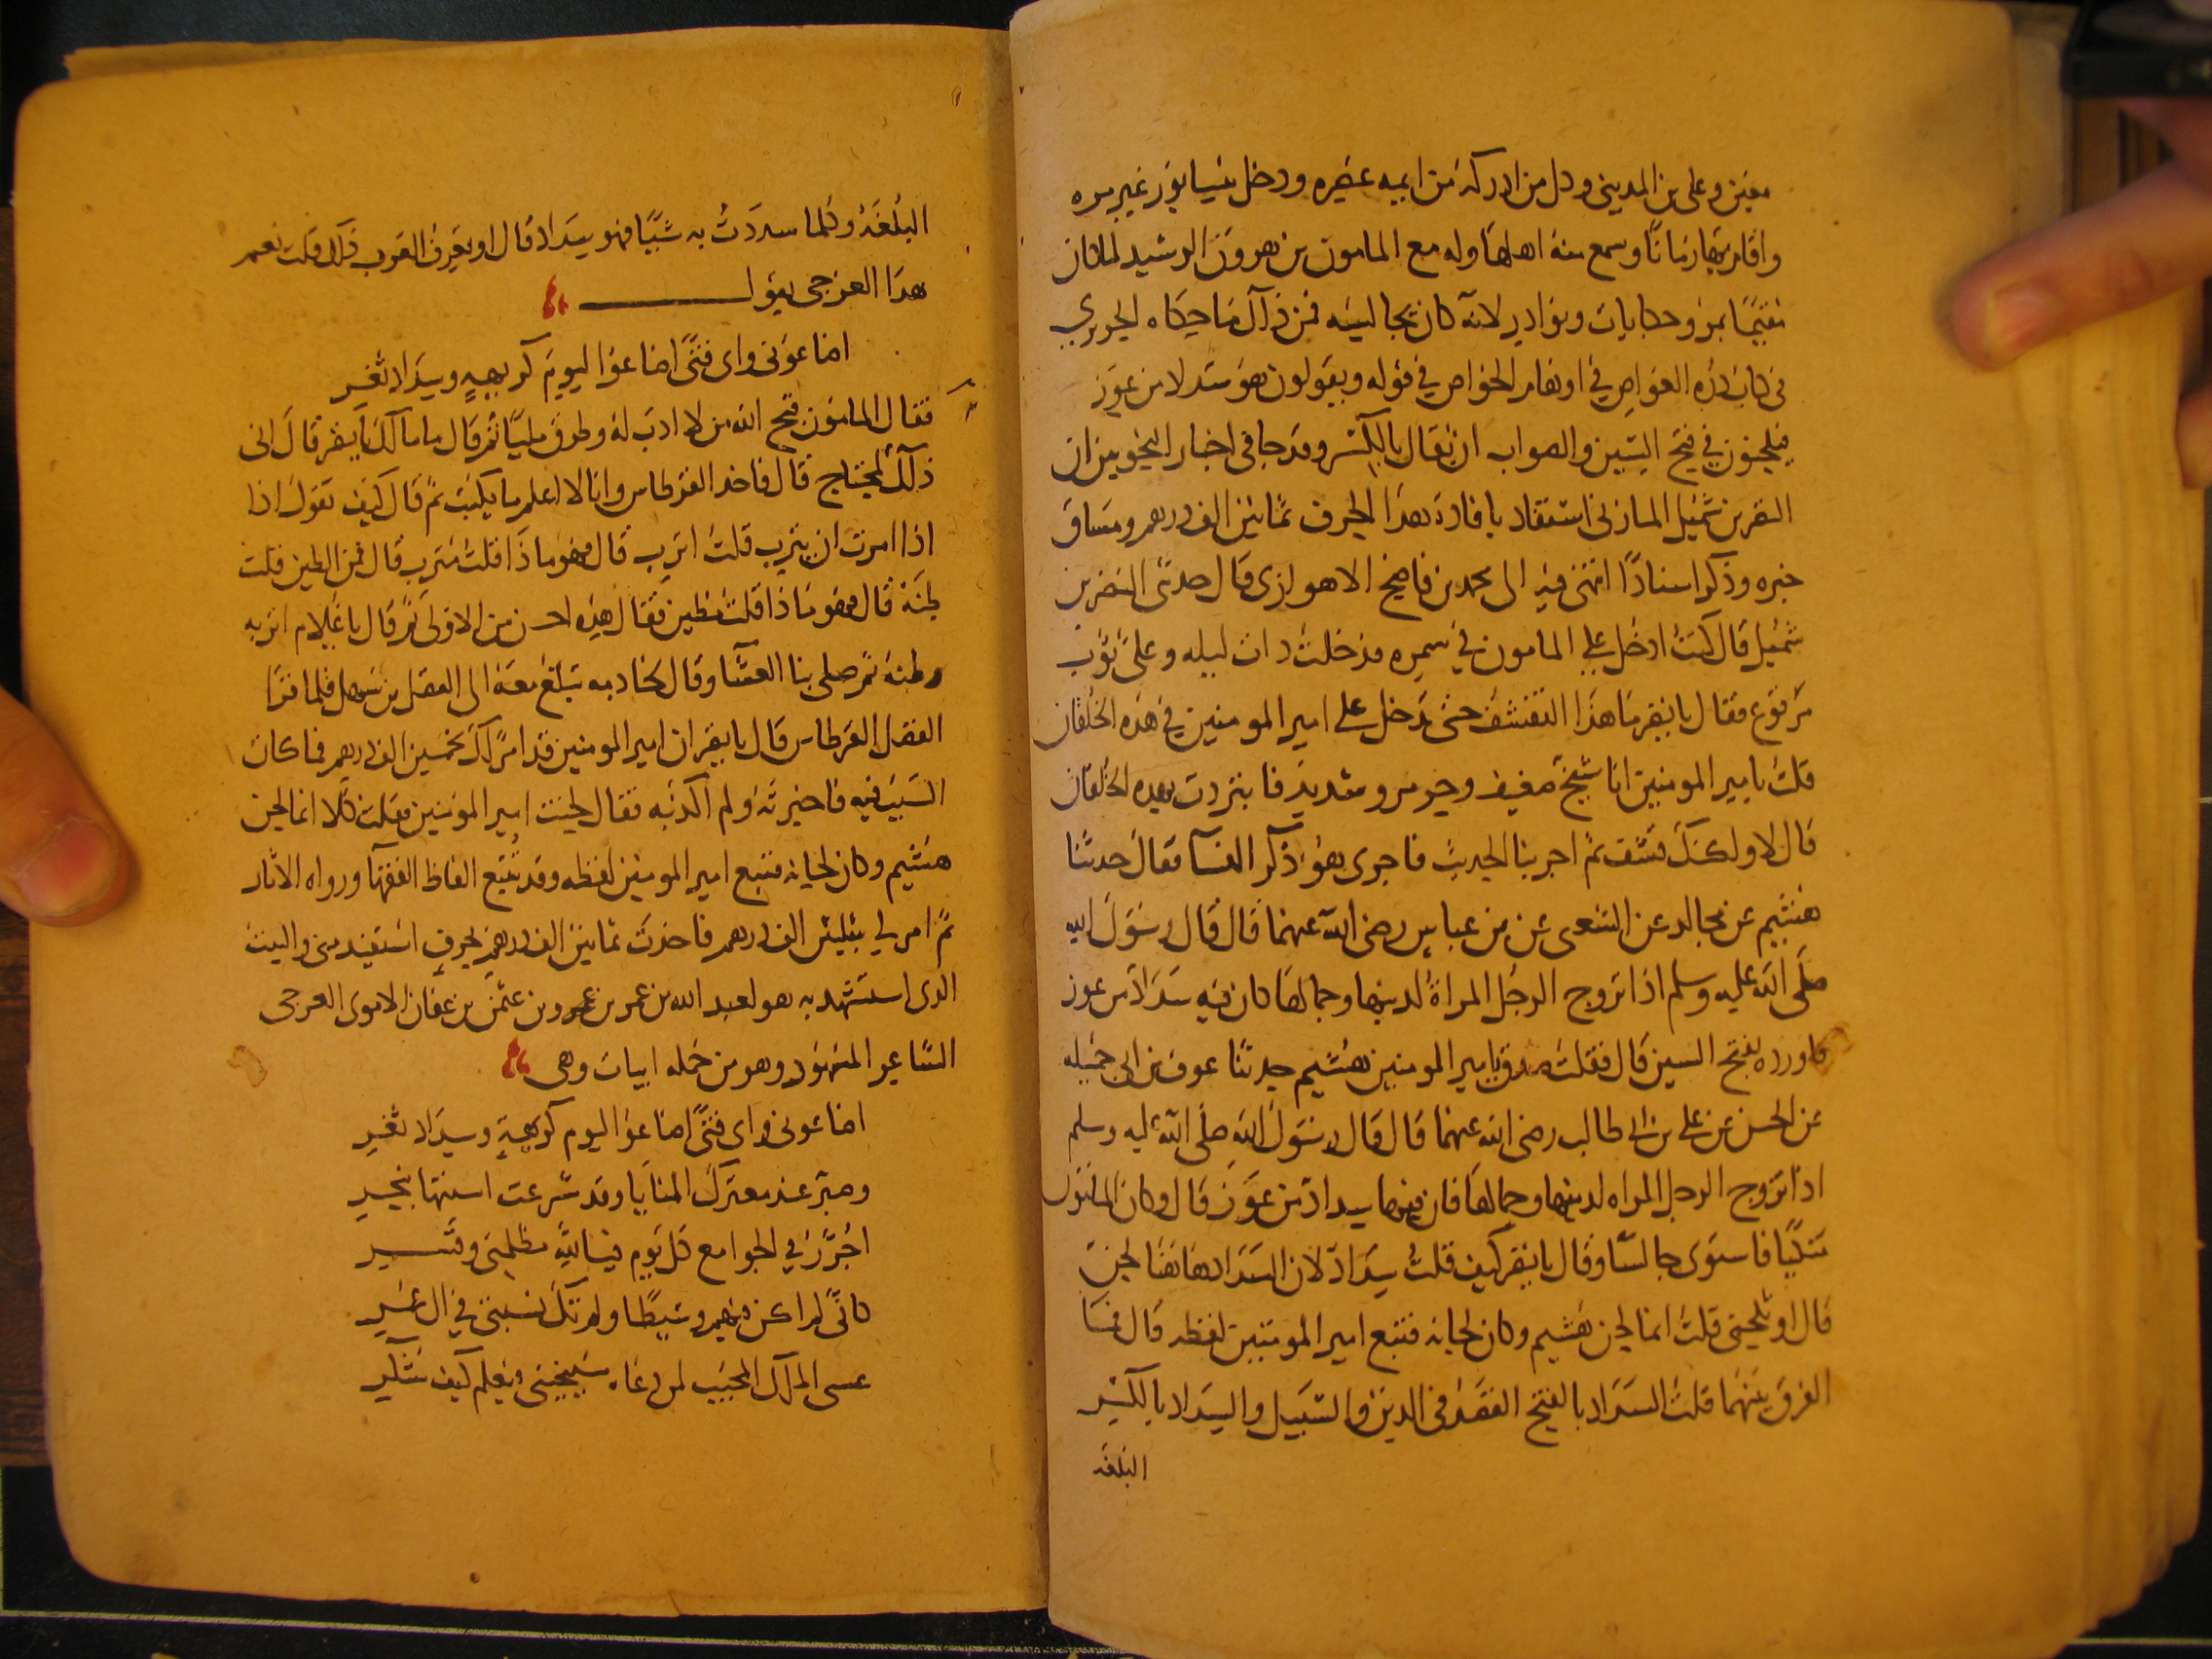 معين وعلى بن المديني وكل من ادركه من ايمه عصره ودخل نيسابور غير مره
واقام بها زمانا وسمع منه اهلها وله مع المامون بن هرون الرشيد لما كان
مقيما بمرو حكايات ونوادر لانه كان يجالسه فمن ذلك ما حكاه الحريري
في كتاب دره الغواص في اوهام الخواص في قوله ويقولون هو سداد من عوز
فيلحنون في فتح السين والصواب ان يقال بالكسر وقد جا في اخبار النحويين ان
النضر بن شميل المازني استفاد بافادة هذا الحرف ثمانين الف درهم ومساق
خبره وذكر اسنادا انتهى فيه الى محمد بن ناصح الاهوازي قال حدثني النضر بن
شميل قال كنت ادخل على المامون في سمره فدخلت ذات ليله وعلى ثوب
مرقوع فقال يا نضر ما هذا التقشف حتى تدخل على امير المومنين في هذه الخلقان
قلت يامير المومنين انا شيخ ضعيف وحر مرو شديد فاتبرد بهذه الخلقان
قال لا ولكنك قشف ثم اجرينا الحديث فاجرى هو ذكر النسا فقال حدثنا
هشيم عن مجالد عن الشعبى عن بن عباس رضى الله عنهما قال قال رسول الله
صلى الله عليه وسلم اذا تزوج الرجل المراة لدينها وجمالها كان فيه سداد من عوز
فاورده بفتح السين قال فقلت صدق يامير المومنين هشيم حدثنا عوف بن ابي جميله
عن الحسن عن على بن ابي طالب رضى الله عنهما قال قال رسول الله صلى الله عليه وسلم
اذا تزوج الرجل المراه لدينها وجمالها كان فيها سداد من عوز قال وكان المامون
متكيا فاستوى جالسا وقال يا نضر كيف قلت سداد لان السداد هاهنا لحن
قال او تلحنني قلت انما لحن هشيم وكان لحانه فتبع امير المومنين لفظه قال فما
الفرق بينهما قلت السداد بالفتح القصد في الدين والسبيل والسداد بالكسر
البلغه
البلغة وكلما سددت به شيا فهو سداد قال او تعرف العرب ذلك قلت نعم
هذا العرجي يقول
اضاعوني واى فتى اضاعوا ليوم كريهة وسداد ثغر
فقال المامون قبح الله من لا ادب له واطرق مليا ثم قال ما مالك يا نضر قال انى
ذلك لمحتاج قال فاخذ القرطاس وانا لا اعلم ما يكتب ثم قال كيف تقول اذا
اذا امرت ان يترب قلت اترب قال فهو ماذا قلت مترب قال فمن الطين قلت
طنه قال فهو ماذا قلت مطين فقال هذه احسن من الاولى ثم قال يا غلام اتربه
وطنه ثم صلى بنا العشا وقال لخادمه تبلغ معه الى الفضل بن سهل فلما قرا
الفضل القرطاس قال يا نضر ان امير المومنين قد امر لك بخمسين الف درهم فما كان
السبب فيه فاخبرته ولم اكذبه فقال لحنت امير المومنين فقلت كلا انما لحن
هشيم وكان لحانه فتبع امير المومنين لفظه وقد تتبع الفاظ الفقها ورواه الاثار
ثم امر لي بثلثين الف درهم فاخذت ثمانين الف درهم بحرف استفيد منى والبيت
الذى استشهد به هو لعبد الله بن عمر بن عمرو بن عثمن بن عفان الاموى العرجى
الشاعر المشهور وهو من جمله ابيات وهى
اضاعونى واى فتى اضاعوا ليوم كريهة وسداد ثغر
وصبر عند معترك المنايا وقد شرعت اسنتها بنحرى
اجرر في الجوامع كل يوم فيا لله مظلمتى وقسرى
كانى لم اكن فيهم وسيطا ولم تك نسبتى في ال عمر
عسى الملك المجيب لمن دعاه سينجينى ويعلم كيف شكرى